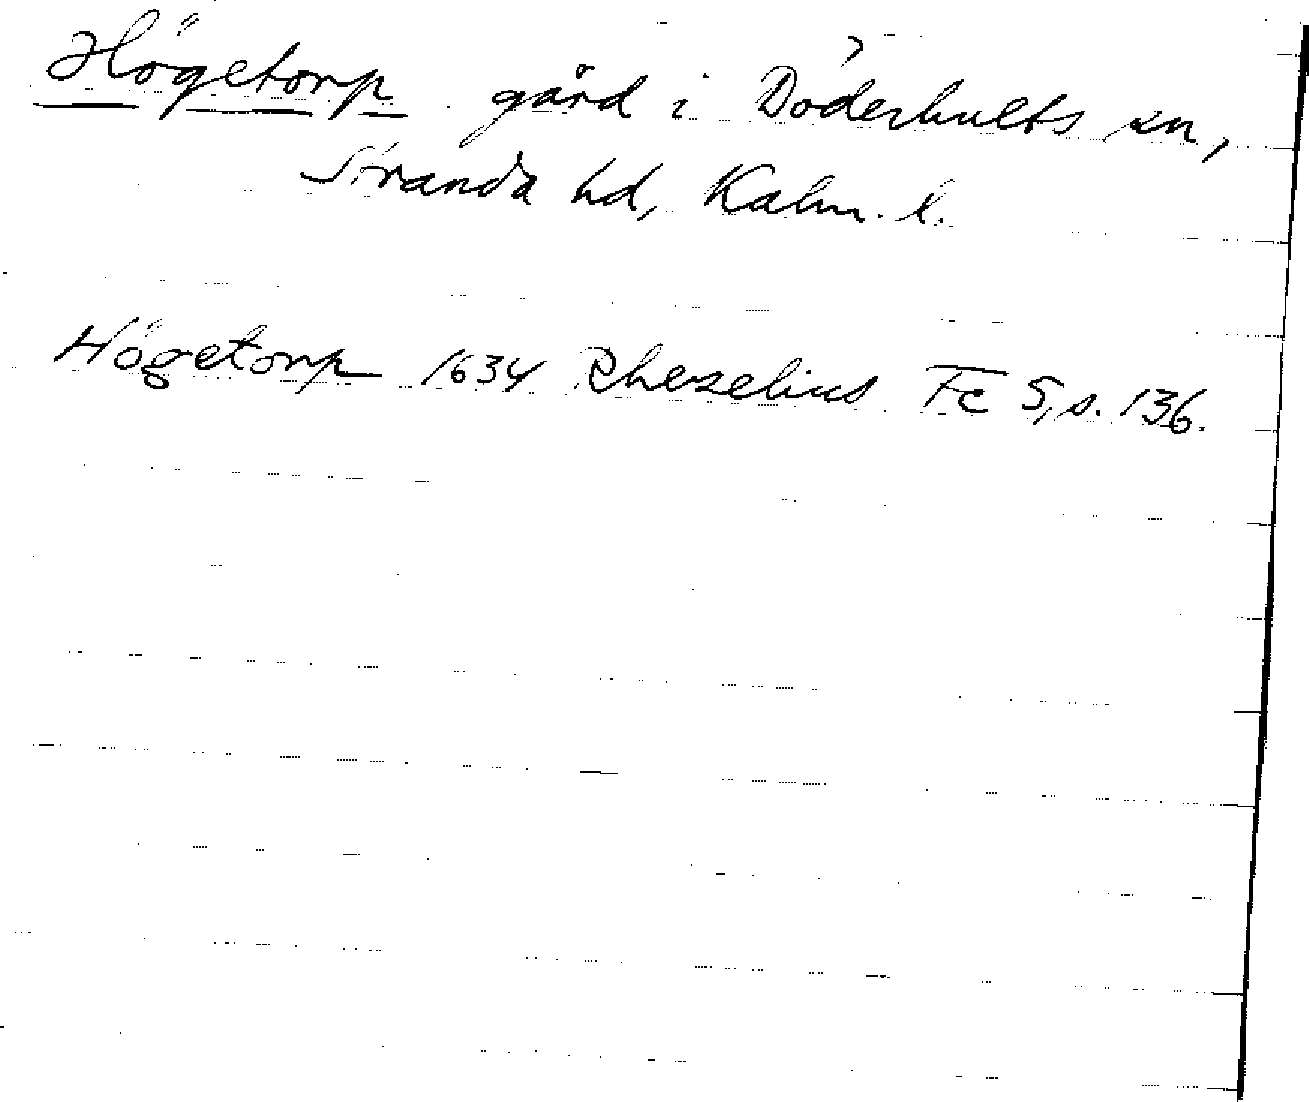 Högetorp gård i Döderhults sn,
Stranda hd, Kalm. l.
Högetorp 1634 Rhezelius Fc 5, s. 136.